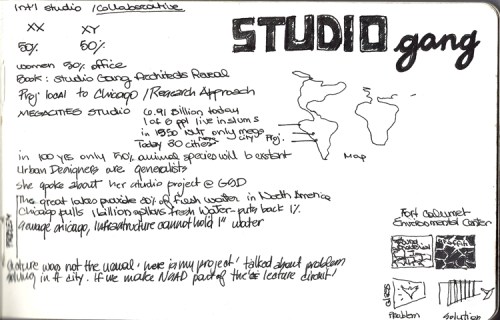 Int'l studio / Collaborative
STUDIO gang
XX XY
50% 50%
women 50% office
Book: Studio Gang Architects Reveal
Proj. local to Chicago / Research Approach
MEGACITIES STUDIO 6.91 Billion today
1 of 6 ppl live in slums
in 1950 NY only mega city
Today 30 cities
Proj.
Map
in 100 yrs only 50% animal species will b extant
Urban Designers are generalists
she spoke about her studio project @ GSD
The great lakes provide 20% of fresh water in North America
Chicago pulls 1 billion gallons fresh Water - puts back 1%
Chicago, Infrastructure cannot hold 1" water
Ford Calumet
Environmental Center
lecture was not the usual 'here is my project' talked about problem
solving in a city. If we make NOAD part of the lecture circuit!
Problem Solution